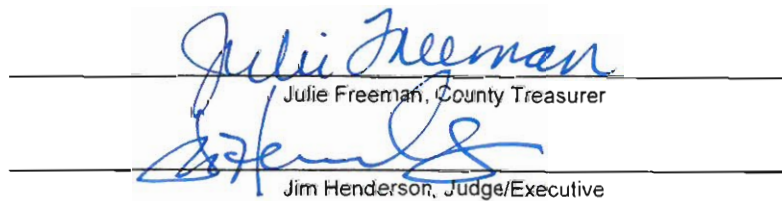 Julie Freeman
Julie Freeman, County Treasurer
Jim Henderson, Judge/Executive